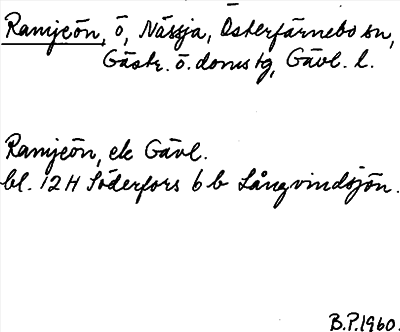 Ramjeön, ö, Nässja, Österfärnebo sn,
Gästr. ö. doms tg, Gävl. l.
Ramjeön, ek Gävl.
bl. 12 H Söderfors 6 b Långvindsjön.
B.P. 1960.